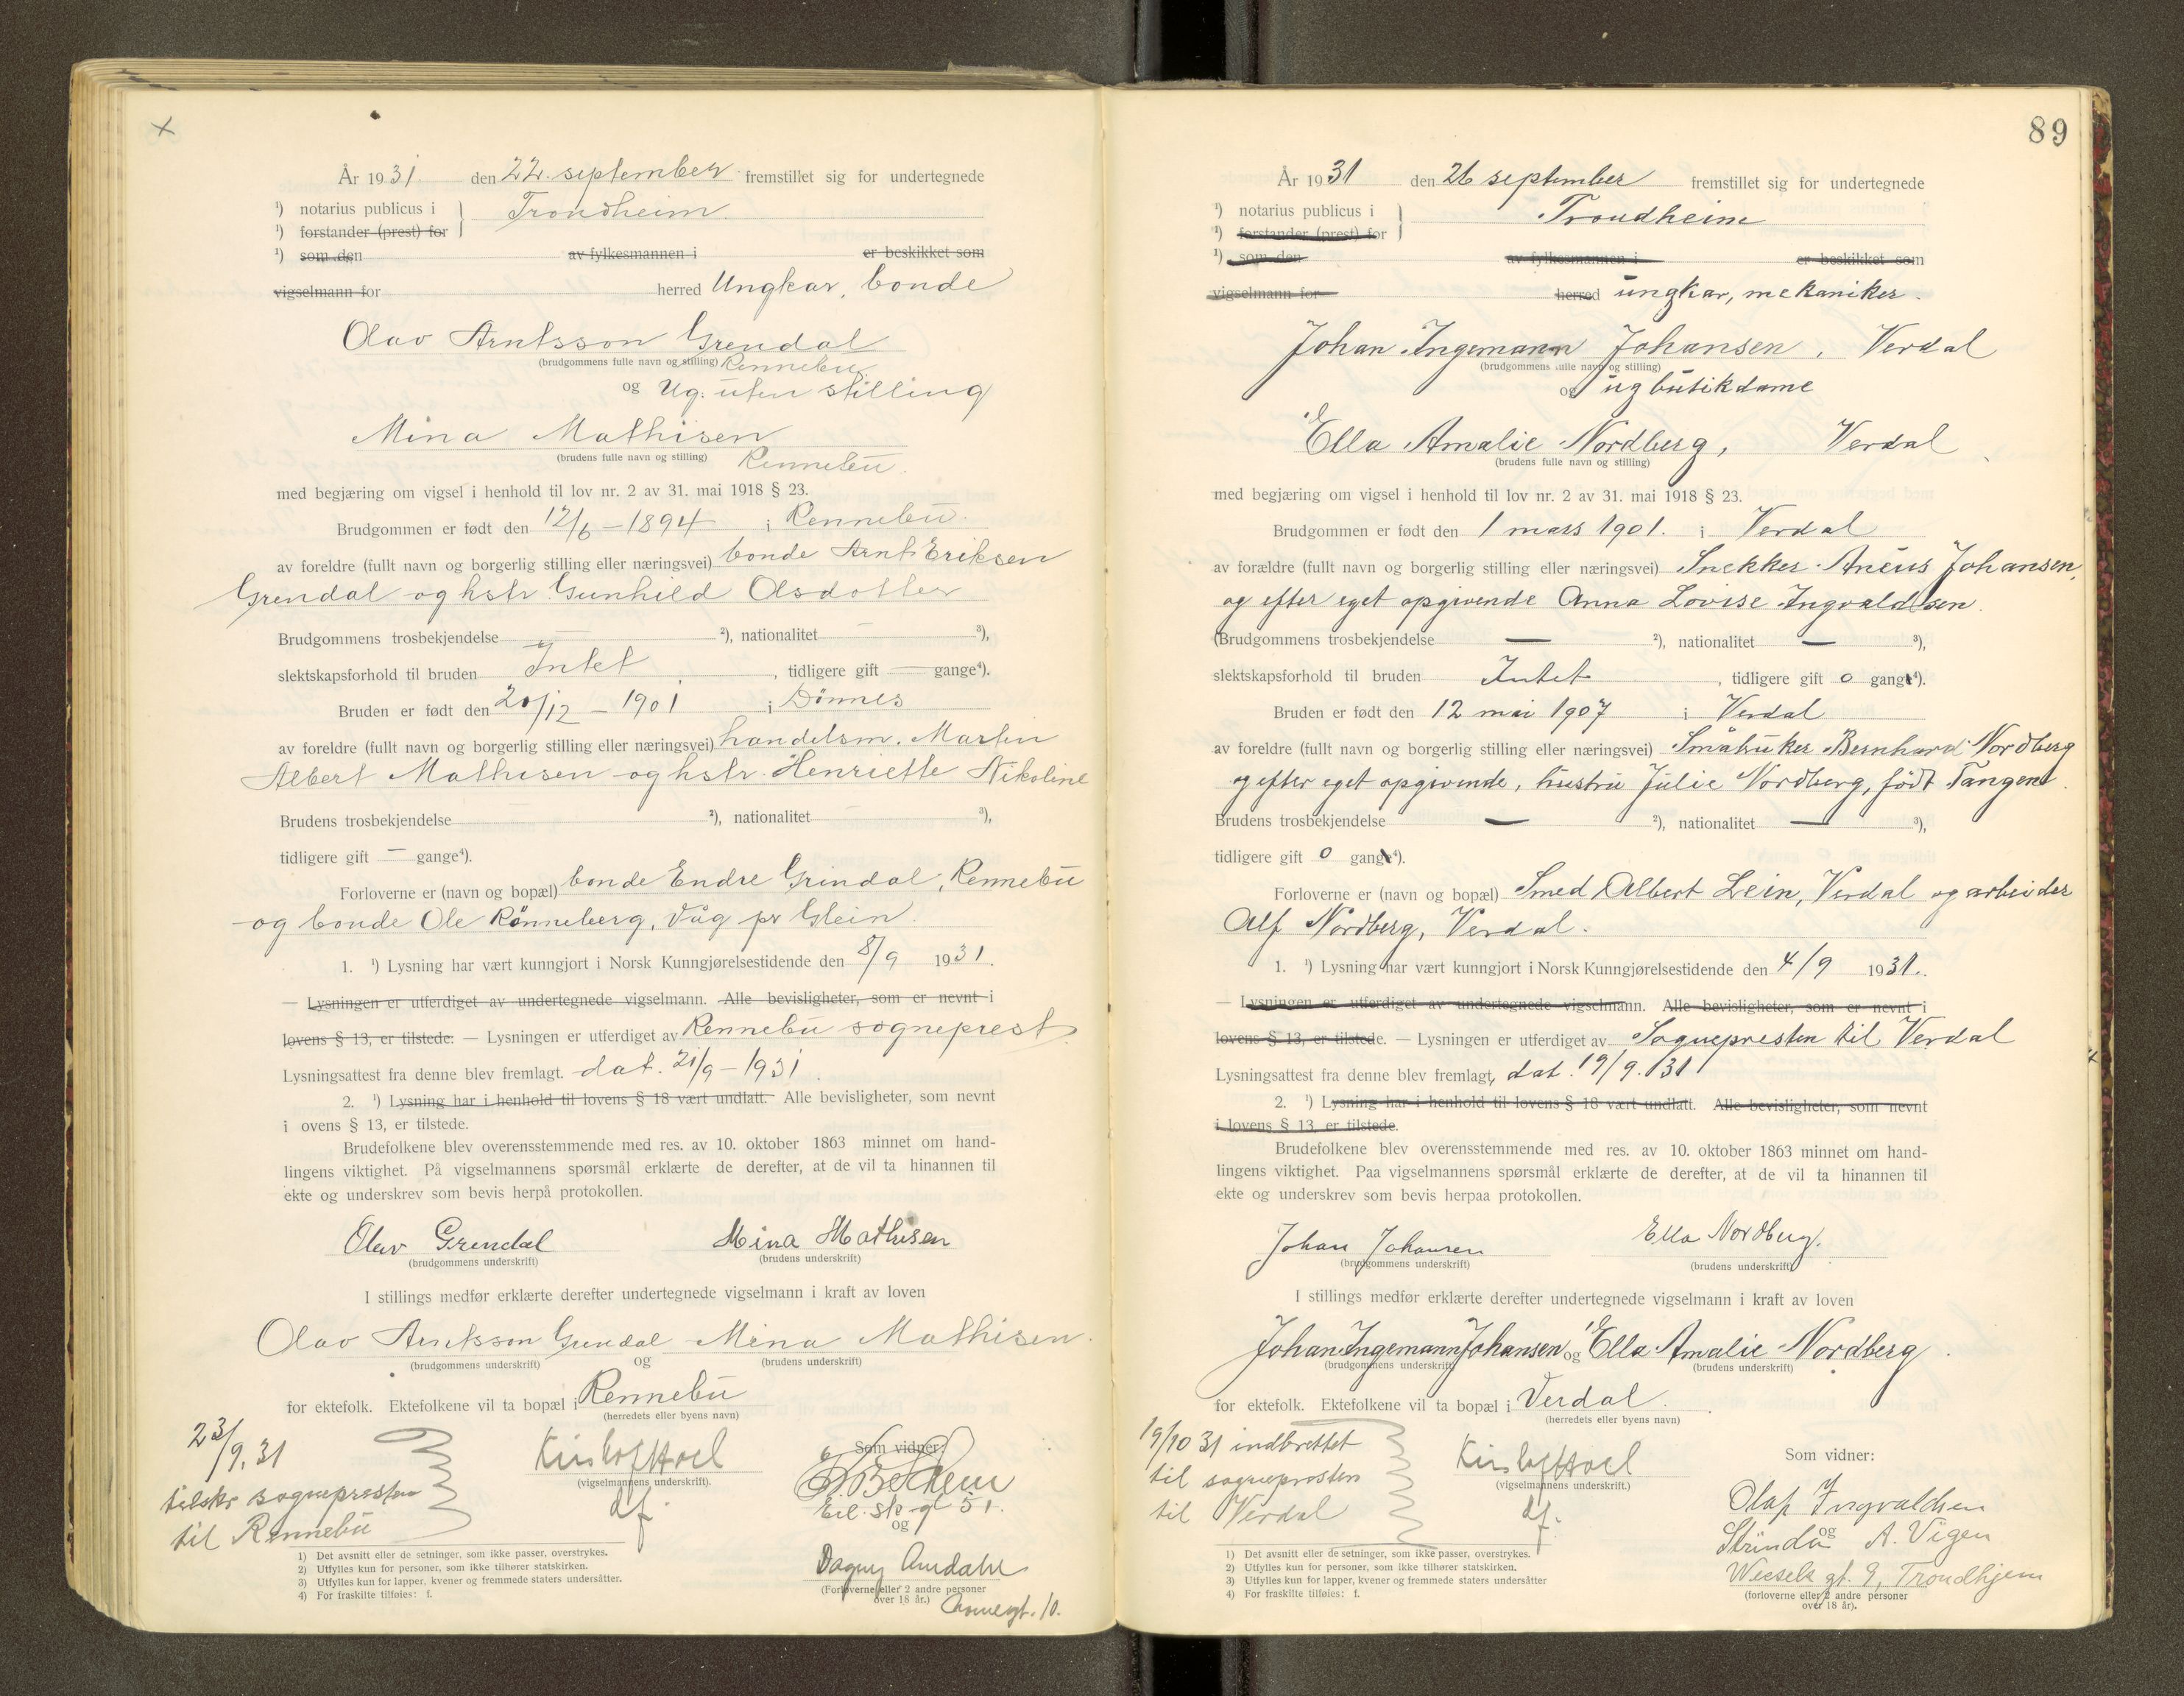 År 1931. den 22. september fremstillet sig for undertegnede
¹) notarius publicus i Trondheim.
¹) forstander (prest) for
¹) som den av fylkesmannen i er beskikket som
vigselmann for herred Ungkar, bonde
Olav Arntsson Grendal
(brudgommens fulle navn og stilling) Rennebu
og Ug. uten stilling
Mina Mathisen
(brudens fulle navn og stilling) Rennebu.
med begjæring om vigsel i henhold til lov nr. 2 av 31. mai 1918 § 23.
Brudgommen er født den 12/6 - 1894 i Rennebu.
av foreldre (fullt navn og borgerlig stilling eller næringsvei) bonde Arnt Eriksen
Grendal og hstr. Gunhild Olsdotter
Brudgommens trosbekjendelse — ²), nationalitet — ³),
slektskapsforhold til bruden Intet, tidligere gift — gange⁴).
Bruden er født den 20/12 - 1901 i Dönnes
av foreldre (fullt navn og borgerlig stilling eller næringsvei) handelsm. Martin
Albert Mathisen og hstr. Henriette Nikoline
Brudens trosbekjendelse ²), nationalitet ³),
tidligere gift — gange⁴).
Forloverne er (navn og bopæl) bonde Endre Grindal, Rennebu
og bonde Ole Rönneberg, Våg pr Glein.
1. ¹) Lysning har vært kunngjort i Norsk Kunngjørelsestidende den 8/9 1931.
— Lysningen er utferdiget av undertegnede vigselmann. Alle bevisligheter, som er nevnt i
lovens § 13, er tilstede. — Lysningen er utferdiget av Rennebu sogneprest
Lysningsattest fra denne blev fremlagt. dat. 21/9 - 1931.
2. ¹) Lysning har i henhold til lovens § 18 vært undlatt. Alle bevisligheter, som nevnt
i ovens § 13, er tilstede.
Brudefolkene blev overensstemmende med res. av 10. oktober 1863 minnet om hand-
lingens viktighet. På vigselmannens spørsmål erklærte de derefter, at de vil ta hinannen til
ekte og underskrev som bevis herpå protokollen.
Olav Grendal Mina Mathisen
(brudgommens underskrift) (brudens underskrift)
I stillings medfør erklærte derefter undertegnede vigselmann i kraft av loven
Olav Arntsson Grendal Mina Mathisen.
(brudgommens underskrift) og (brudens underskrift)
for ektefolk. Ektefolkene vil ta bopæl i Rennebu
(herredets eller byens navn)
23/9.31
tilskr sognepresten
til Rennebu
(vigselmannens underskrift).
Som vidner:
og
Dagny Amdahl
(Forloverne eller 2 andre personer
over 18 år.)
1) Det avsnitt eller de setninger, som ikke passer, overstrykes.
2) Utfylles kun for personer, som ikke tilhører statskirken.
3) Utfylles kun for lapper, kvener og fremmede staters undersåtter.
4) For fraskilte tilføies: f.
89
År 1931 den 26 september fremstillet sig for undertegnede
¹) notarius publicus i Trondheim
¹) forstander (prest) for
¹) som den av fylkesmannen i er beskikket som
vigselmann for herred ungkar, mekaniker.
Johan Ingemann Johansen, Verdal
(brudgommens fulle navn og stilling)
og ug butikdame
Ella Amalie Nordberg, Verdal
(brudens fulle navn og stilling)
med begjæring om vigsel i henhold til lov nr. 2 av 31. mai 1918 § 23.
Brudgommen er født den 1 mars 1901. i Verdal
av forældre (fullt navn og borgerlig stilling eller næringsvei) Snekker Aneus Johansen,
og efter eget opgivende Anna Lovise Ingvaldsen.
(Brudgommens trosbekjendelse — ²), nationalitet — ³),
slektskapsforhold til bruden Intet, tidligere gift 0 gang⁴).
Bruden er født den 12 mai 1907 i Verdal
av foreldre (fullt navn og borgerlig stilling eller næringsvei) Småbruker Bernhard Nordberg
og efter eget opgivende, hustru Julie Nordberg, födt Tangen.
Brudens trosbekjendelse — ²), nationalitet — ³),
tidligere gift 0 gang⁴).
Forloverne er (navn og bopæl) Smed Albert Lein, Verdal og arbeider
Alf Nordberg, Verdal.
1. ¹) Lysning har vært kunngjort i Norsk Kunngjørelsestidende den 4/9 1931.
— Lysningen er utferdiget av undertegnede vigselmann. Alle bevisligheter, som er nevnt i
lovens § 13, er tilstede. — Lysningen er utferdiget av Sognepresten til Verdal
Lysningsattest fra denne blev fremlagt, dat. 19/9.31
2. ¹) Lysning har i henhold til lovens § 18 vært undlatt. Alle bevisligheter, som nevnt
i lovens § 13, er tilstede.
Brudefolkene blev overensstemmende med res. av 10. oktober 1863 minnet om hand-
lingens viktighet. Paa vigselmannens spørsmål erklærte de derefter, at de vil ta hinannen til
ekte og underskrev som bevis herpaa protokollen.
Johan Johansen Ella Nordberg.
(brudgommens underskrift) (brudens underskrift)
I stillings medfør erklærte derefter undertegnede vigselmann i kraft av loven
Johan Ingemann Johansen og Ella Amalie Nordberg.
(brudgommens underskrift) (brudens underskrift)
for ektefolk. Ektefolkene vil ta bopæl i Verdal.
(herredets eller byens navn)
19/10 31 indberettet
til sognepresten
til Verdal
(vigselmannens underskrift.)
Som vidner:
Olaf Ingvaldsen
Strinda og A. Vigen
Wessels gt. 9, Trondhjem
(forloverne eller 2 andre personer
over 18 år).
1) Det avsnitt eller de setninger, som ikke passer, overstrykes.
2) Utfylles kun for personer, som ikke tilhører statskirken.
3) Utfylles kun for lapper, kvener og fremmede staters undersåtter
4) For fraskilte tilføies: f.